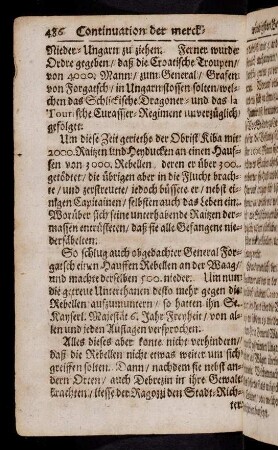 486 Continuation der merck-
Nieder-Ungarn zu ziehen. Ferner wurde
Ordre gegeben / daß die Croatische Troupen /
von 4000. Mann / zum General / Grafen
von Forgatsch / in Ungarn stossen solten / wel-
chen das Schlickische Dragoner- und das la
Tour sche Curassier-Regiment unverzüglich
gefolget.
Um diese Zeit geriethe der Obrist Kiba mit
2000. Raitzen und Heyducken an einen Hauf-
fen von 3000. Rebellen / deren er über 300.
getödtet / die übrigen aber in die Flucht brach-
te / und zerstreuete / jedoch büssete er / nebst ei-
nigen Capitainen / selbsten auch das Leben ein.
Worüber sich seine unterhabende Raitzen der-
massen entrüsteten / daß sie alle Gefangene nie-
dersäbelten.
So schlug auch obgedachter General For-
gatsch einen Hauffen Rebellen an der Waag /
und machte derselben 500. nieder. Um nun
die getreue Unterthanen desto mehr gegen die
Rebellen aufzumuntern / so hatten ihn Se.
Kayserl. Majestät 6. Jahr Freyheit / von al-
len und jeden Auflagen versprochen.
Alles dieses aber konte nicht verhindern /
daß die Rebellen nicht etwas weiter um sich
greiffen solten. Dann / nachdem sie nebst an-
dern Orten / auch Debrezin in ihre Gewalt
brachten / liesse der Ragozzi den Stadt-Rich-
ter